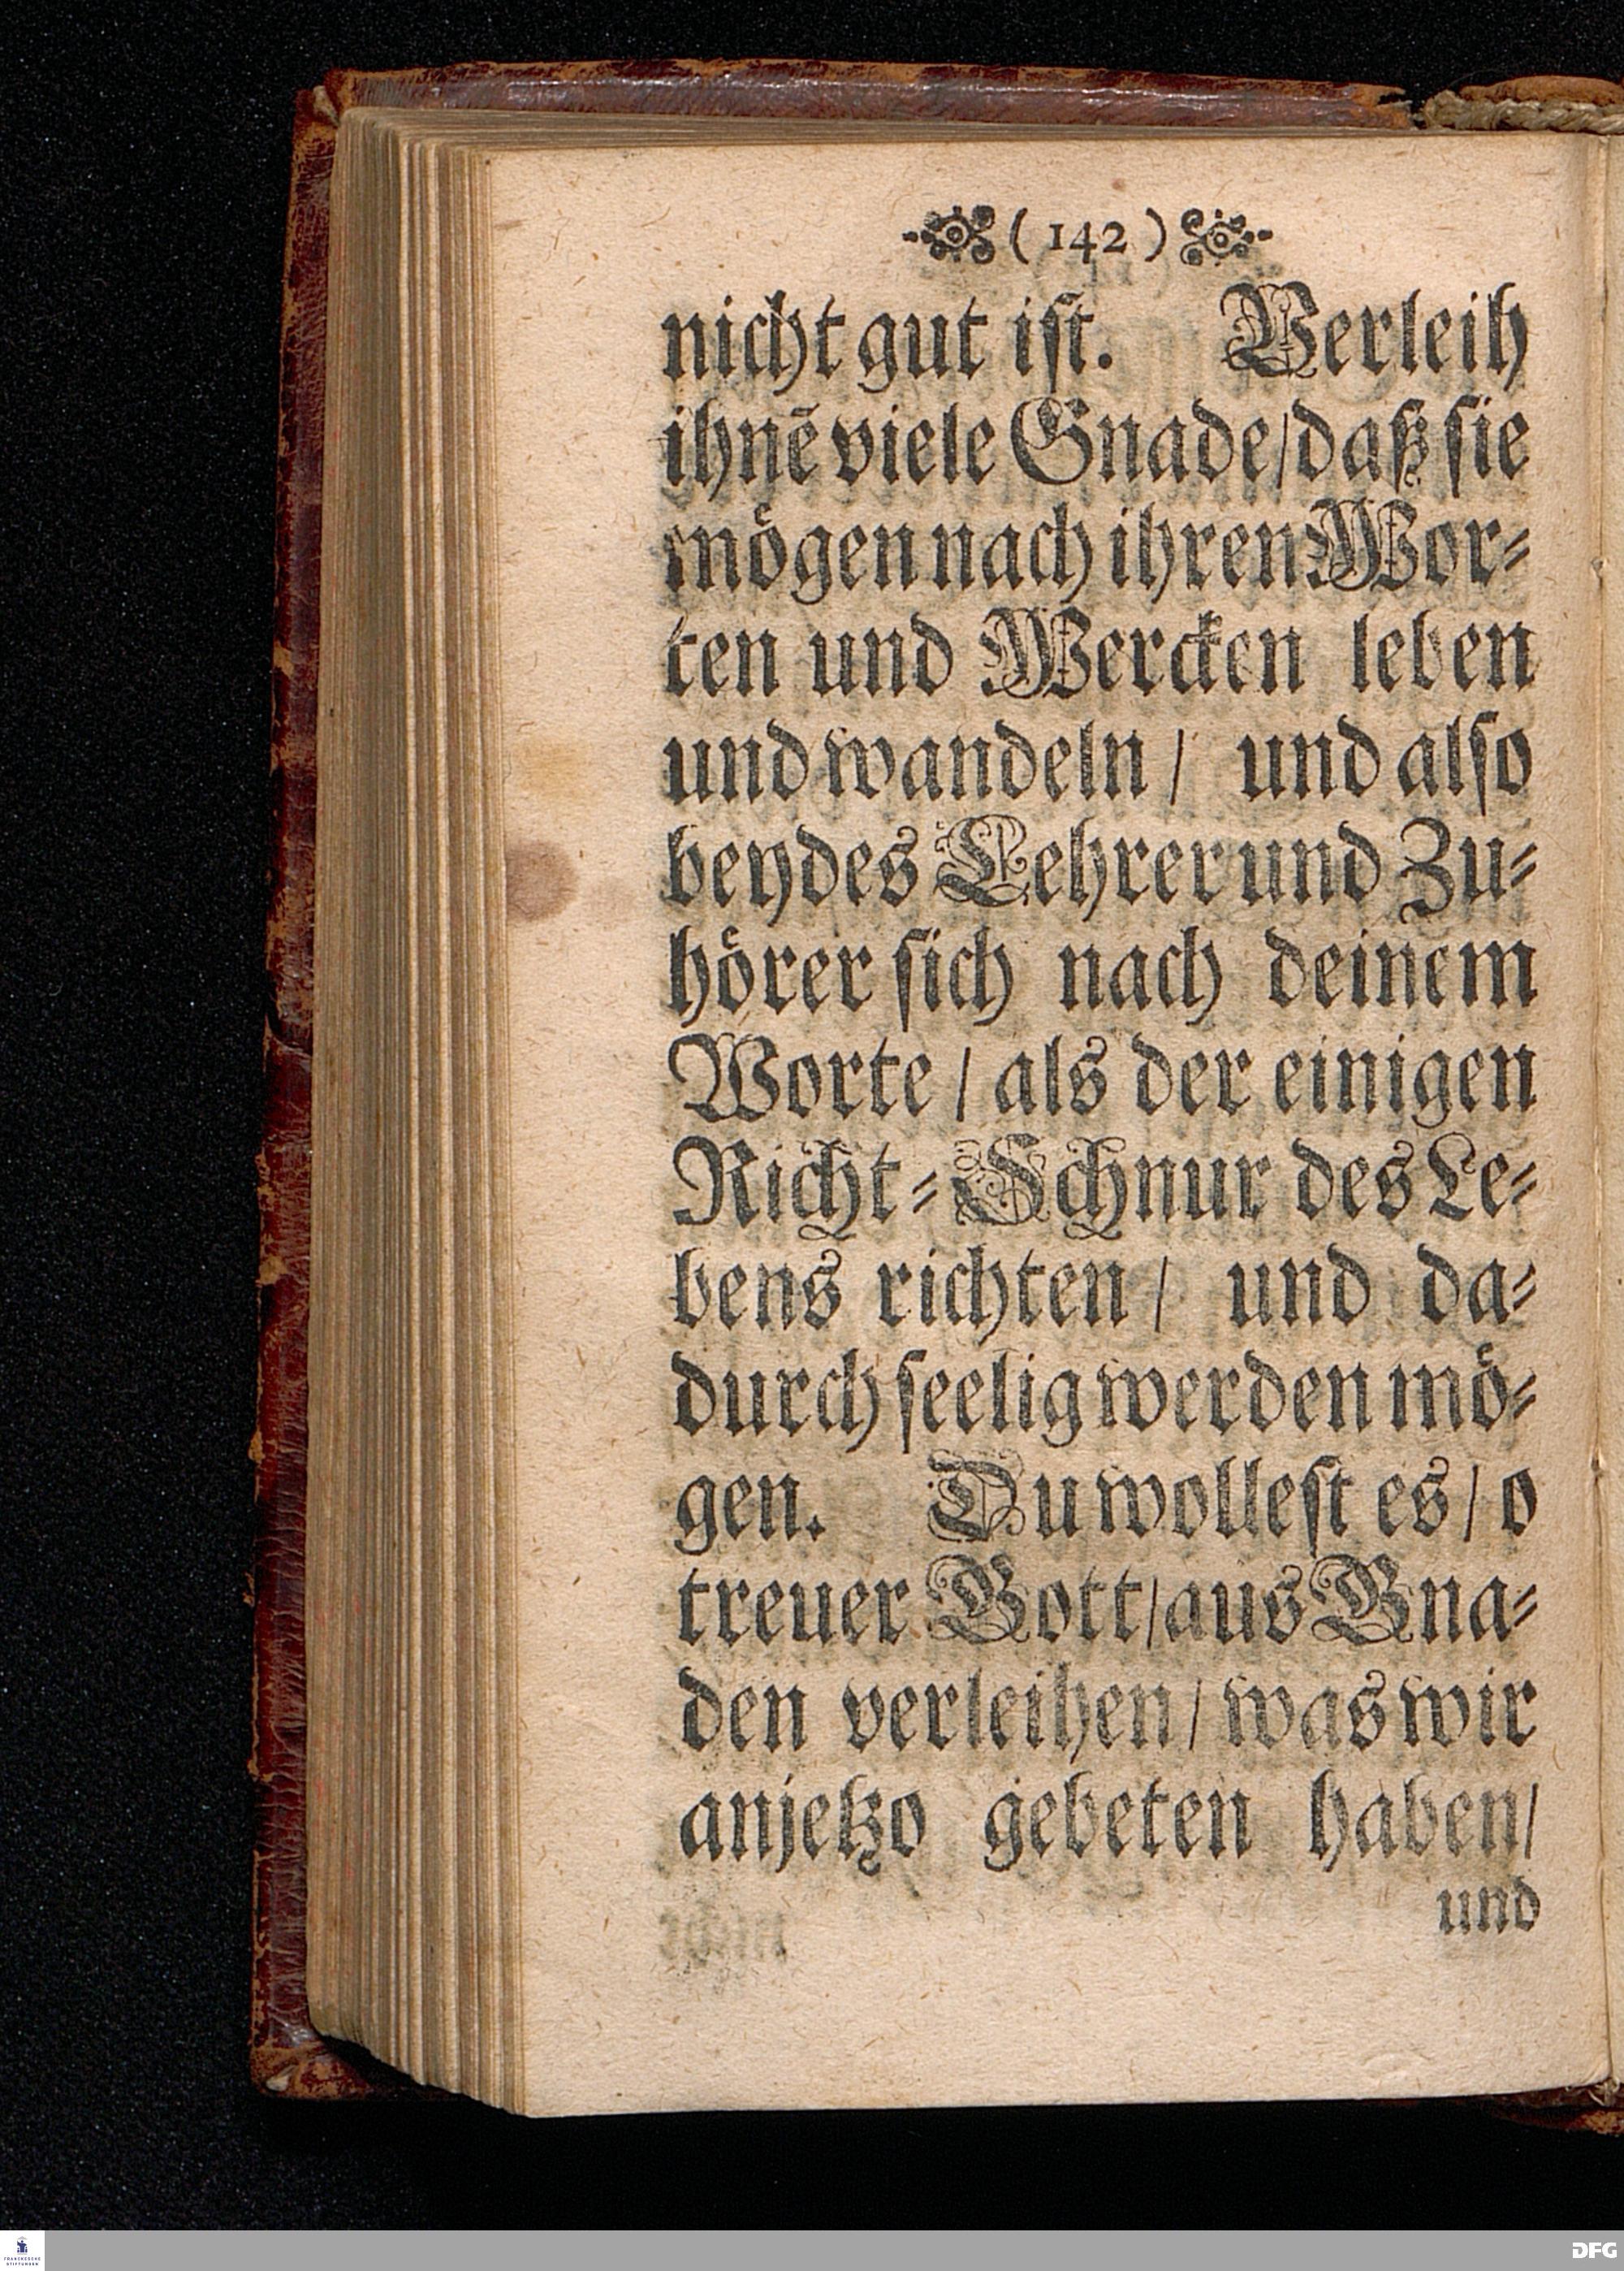 ( 142 )
nicht gut ist. Verleih
ihnē viele Gnade/daß sie
mögen nach ihren Wor-
ten und Wercken leben
und wandeln / und also
beydes Lehrer und Zu-
hörer sich nach deinem
Worte / als der einigen
Richt-Schnur des Le-
bens richten / und da-
durch seelig werden mö-
gen. Du wollest es / o
treuer Gott/aus Gna-
den verleihen / was wir
anjetzo gebeten haben/
und
FRANCKESCHE
STIFTUNGEN
DFG